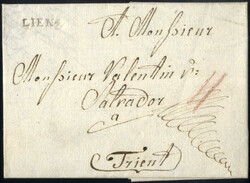 LIENZ
A. Monsieur
Monsieur Valentin v:
Salvador
a
Trient